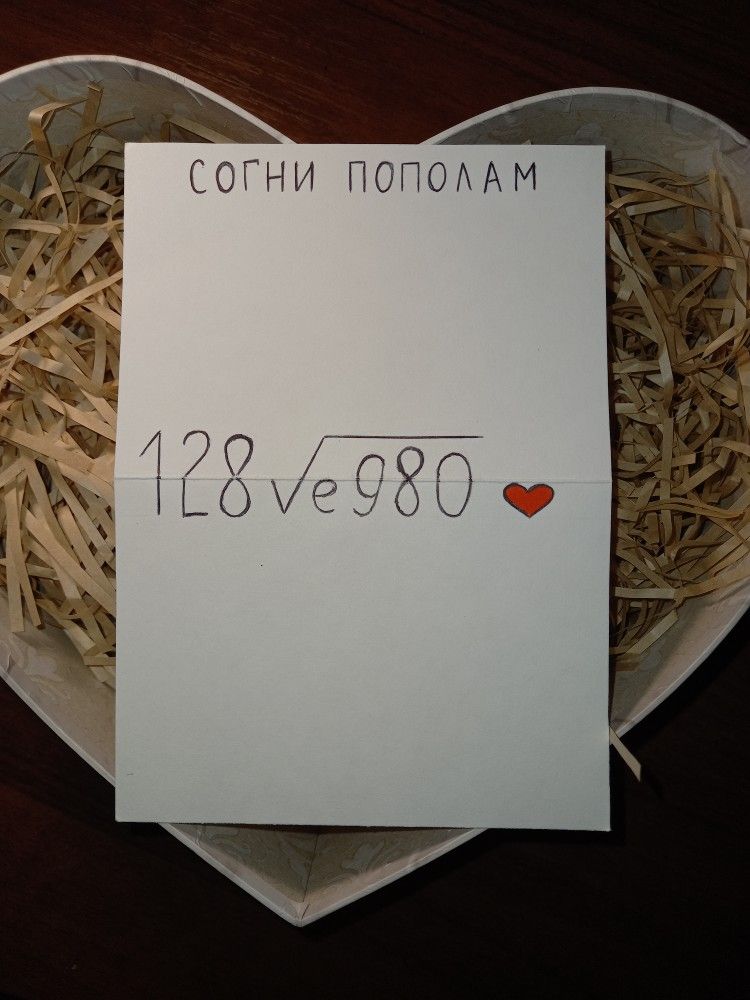 СОГНИ ПОПОЛАМ
128√e980